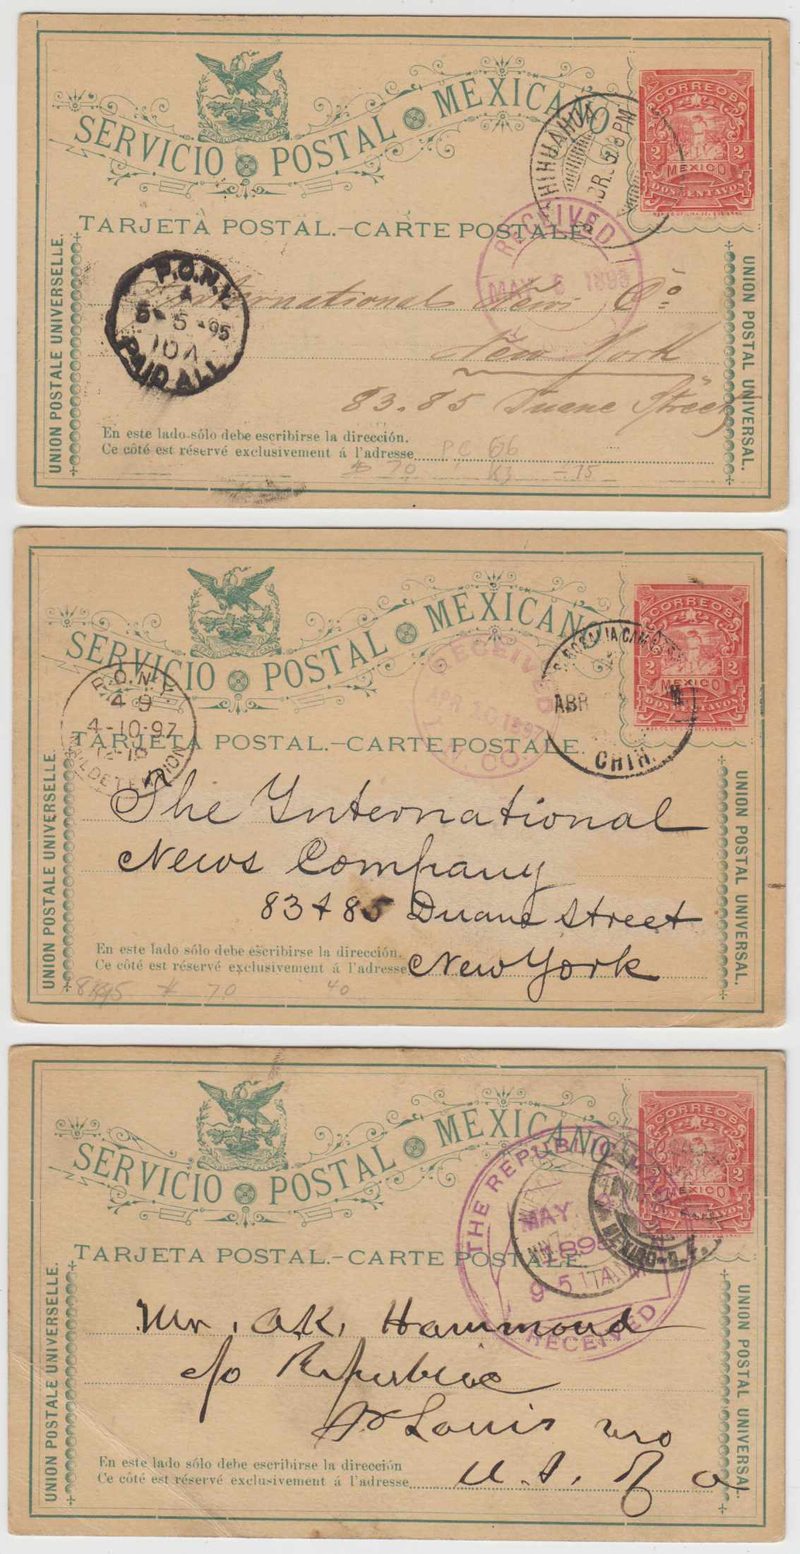 SERVICIO POSTAL MEXICANO
CORREOS
2 2
MEXICO
DOS CENTAVOS
CHIHUAHUA
8 PM
TARJETA POSTAL.-CARTE POSTALE.
RECEIVED
MAY
P.O.N.Y.
A
5-5-95
10A
PAID ALL
International News Co
New York
83.85 Duane Street
UNION POSTALE UNIVERSELLE.
UNION POSTAL UNIVERSAL.
En este lado sólo debe escribirse la dirección.
Ce côté est réservé exclusivement á l'adresse
PC 66
70
SERVICIO POSTAL MEXICANO
CORREOS
2 2
MEXICO
DOS CENTAVOS
ABR
CHIH.
RECEIVED
APR 10 1897
I. N. CO.
P.O.N.Y.
4-10-97
TARJETA POSTAL.-CARTE POSTALE.
The International
News Company
83 & 85 Duane Street
New York
UNION POSTALE UNIVERSELLE.
UNION POSTAL UNIVERSAL.
En este lado sólo debe escribirse la dirección.
Ce côté est réservé exclusivement á l'adresse
70 40
SERVICIO POSTAL MEXICANO
CORREOS
2 2
MEXICO
DOS CENTAVOS
MEXICO-D.F.
THE REPUBLIC
MAY
9 51 AM
RECEIVED
TARJETA POSTAL.-CARTE POSTALE.
Mr. O.K. Hammond
c/o Republic
St Louis Mo
U.S. of A
UNION POSTALE UNIVERSELLE.
UNION POSTAL UNIVERSAL.
En este lado sólo debe escribirse la dirección
Ce côté est réservé exclusivement á l'adresse